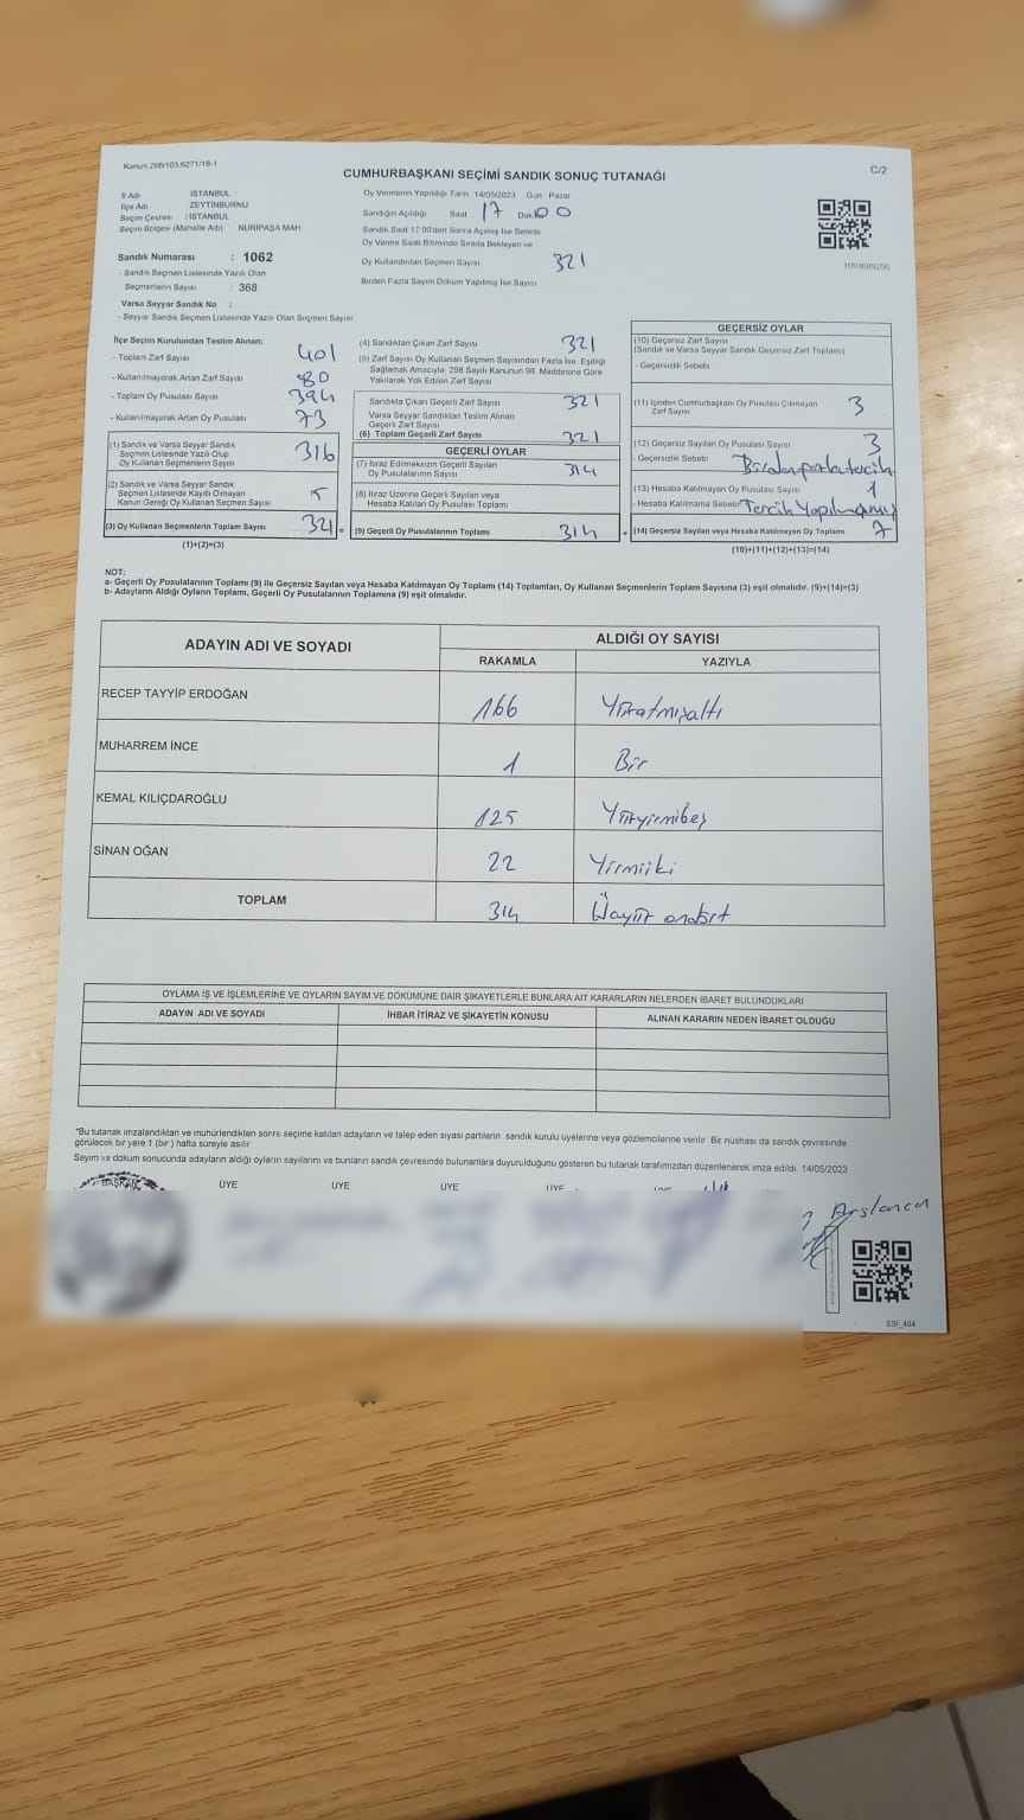 Kanun 298/103,6271/18-1
C/2
CUMHURBAŞKANI SEÇİMİ SANDIK SONUÇ TUTANAĞI
İl Adı : İSTANBUL
İlçe Adı : ZEYTİNBURNU
Seçim Çevresi : İSTANBUL
Seçim Bölgesi (Mahalle Adı) : NURİPAŞA MAH
Sandık Numarası : 1062
- Sandık Seçmen Listesinde Yazılı Olan
Seçmenlerin Sayısı : 368
Varsa Seyyar Sandık No :
- Seyyar Sandık Seçmen Listesinde Yazılı Olan Seçmen Sayısı
Oy Vermenin Yapıldığı Tarih 14/05/2023 Gün Pazar
Sandığın Açıldığı Saat 17 Dak. 00
Sandık Saat 17:00'den Sonra Açılmış İse Sebebi
Oy Verme Saati Bitiminde Sırada Bekleyen ve
Oy Kullandırılan Seçmen Sayısı 321
Birden Fazla Sayım Döküm Yapılmış İse Sayısı
İlçe Seçim Kurulundan Teslim Alınan:
- Toplam Zarf Sayısı 401
- Kullanılmayarak Artan Zarf Sayısı 80
- Toplam Oy Pusulası Sayısı 394
- Kullanılmayarak Artan Oy Pusulası 73
(1) Sandık ve Varsa Seyyar Sandık
Seçmen Listesinde Yazılı Olup
Oy Kullanan Seçmenlerin Sayısı 316
(2) Sandık ve Varsa Seyyar Sandık
Seçmen Listesinde Kayıtlı Olmayan
Kanun Gereği Oy Kullanan Seçmen Sayısı 5
(3) Oy Kullanan Seçmenlerin Toplam Sayısı 321 =
(1)+(2)=(3)
(4) Sandıktan Çıkan Zarf Sayısı 321
(5) Zarf Sayısı Oy Kullanan Seçmen Sayısından Fazla İse, Eşitliği
Sağlamak Amacıyla, 298 Sayılı Kanunun 98. Maddesine Göre
Yakılarak Yok Edilen Zarf Sayısı
Sandıkta Çıkan Geçerli Zarf Sayısı 321
Varsa Seyyar Sandıktan Teslim Alınan
Geçerli Zarf Sayısı
(6) Toplam Geçerli Zarf Sayısı 321
GEÇERLİ OYLAR
(7) İtiraz Edilmeksizin Geçerli Sayılan
Oy Pusulalarının Sayısı 314
(8) İtiraz Üzerine Geçerli Sayılan veya
Hesaba Katılan Oy Pusulası Toplamı
(9) Geçerli Oy Pusulalarının Toplamı 314 +
GEÇERSİZ OYLAR
(10) Geçersiz Zarf Sayısı
(Sandık ve Varsa Seyyar Sandık Geçersiz Zarf Toplamı)
- Geçersizlik Sebebi
(11) İçinden Cumhurbaşkanı Oy Pusulası Çıkmayan
Zarf Sayısı 3
(12) Geçersiz Sayılan Oy Pusulası Sayısı 3
- Geçersizlik Sebebi Birden fazla tercih
(13) Hesaba Katılmayan Oy Pusulası Sayısı 1
- Hesaba Katılmama Sebebi Tercih Yapılmamış
(14) Geçersiz Sayılan veya Hesaba Katılmayan Oy Toplamı 7
(10)+(11)+(12)+(13)=(14)
NOT:
a- Geçerli Oy Pusulalarının Toplamı (9) ile Geçersiz Sayılan veya Hesaba Katılmayan Oy Toplamı (14) Toplamları, Oy Kullanan Seçmenlerin Toplam Sayısına (3) eşit olmalıdır. (9)+(14)=(3)
b- Adayların Aldığı Oyların Toplamı, Geçerli Oy Pusulalarının Toplamına (9) eşit olmalıdır.
ADAYIN ADI VE SOYADI
ALDIĞI OY SAYISI
RAKAMLA YAZIYLA
RECEP TAYYİP ERDOĞAN 166 Yüzatmışaltı
MUHARREM İNCE 1 Bir
KEMAL KILIÇDAROĞLU 125 Yüzyirmibeş
SİNAN OĞAN 22 Yirmiiki
TOPLAM 314 Üçyüz ondört
OYLAMA İŞ VE İŞLEMLERİNE VE OYLARIN SAYIM VE DÖKÜMÜNE DAİR ŞİKAYETLERLE BUNLARA AİT KARARLARIN NELERDEN İBARET BULUNDUKLARI
ADAYIN ADI VE SOYADI İHBAR İTİRAZ VE ŞİKAYETİN KONUSU ALINAN KARARIN NEDEN İBARET OLDUĞU
*Bu tutanak imzalandıktan ve mühürlendikten sonra seçime katılan adayların ve talep eden siyasi partilerin sandık kurulu üyelerine veya gözlemcilerine verilir. Bir nüshası da sandık çevresinde
görülecek bir yere 1 (bir) hafta süreyle asılır.
Sayım ve döküm sonucunda adayların aldığı oyların sayılarını ve bunların sandık çevresinde bulunanlara duyurulduğunu gösteren bu tutanak tarafımızdan düzenlenerek imza edildi. 14/05/2023
BAŞKAN ÜYE ÜYE ÜYE ÜYE
Arslancan